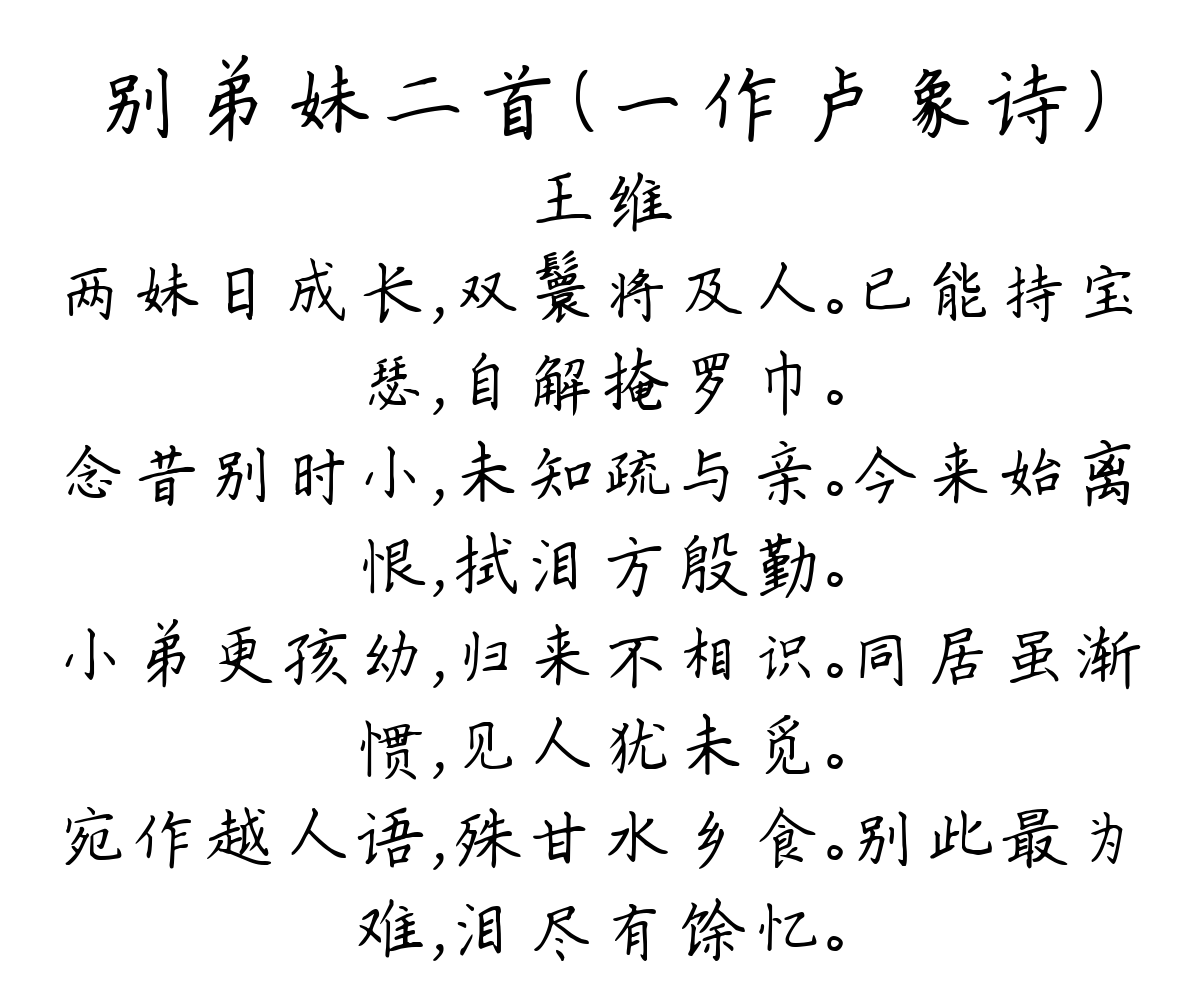 别弟妹二首(一作卢象诗)
王维
两妹日成长,双鬟将及人。已能持宝
瑟,自解掩罗巾。
念昔别时小,未知疏与亲。今来始离
恨,拭泪方殷勤。
小弟更孩幼,归来不相识。同居虽渐
惯,见人犹未觅。
宛作越人语,殊甘水乡食。别此最为
难,泪尽有馀忆。